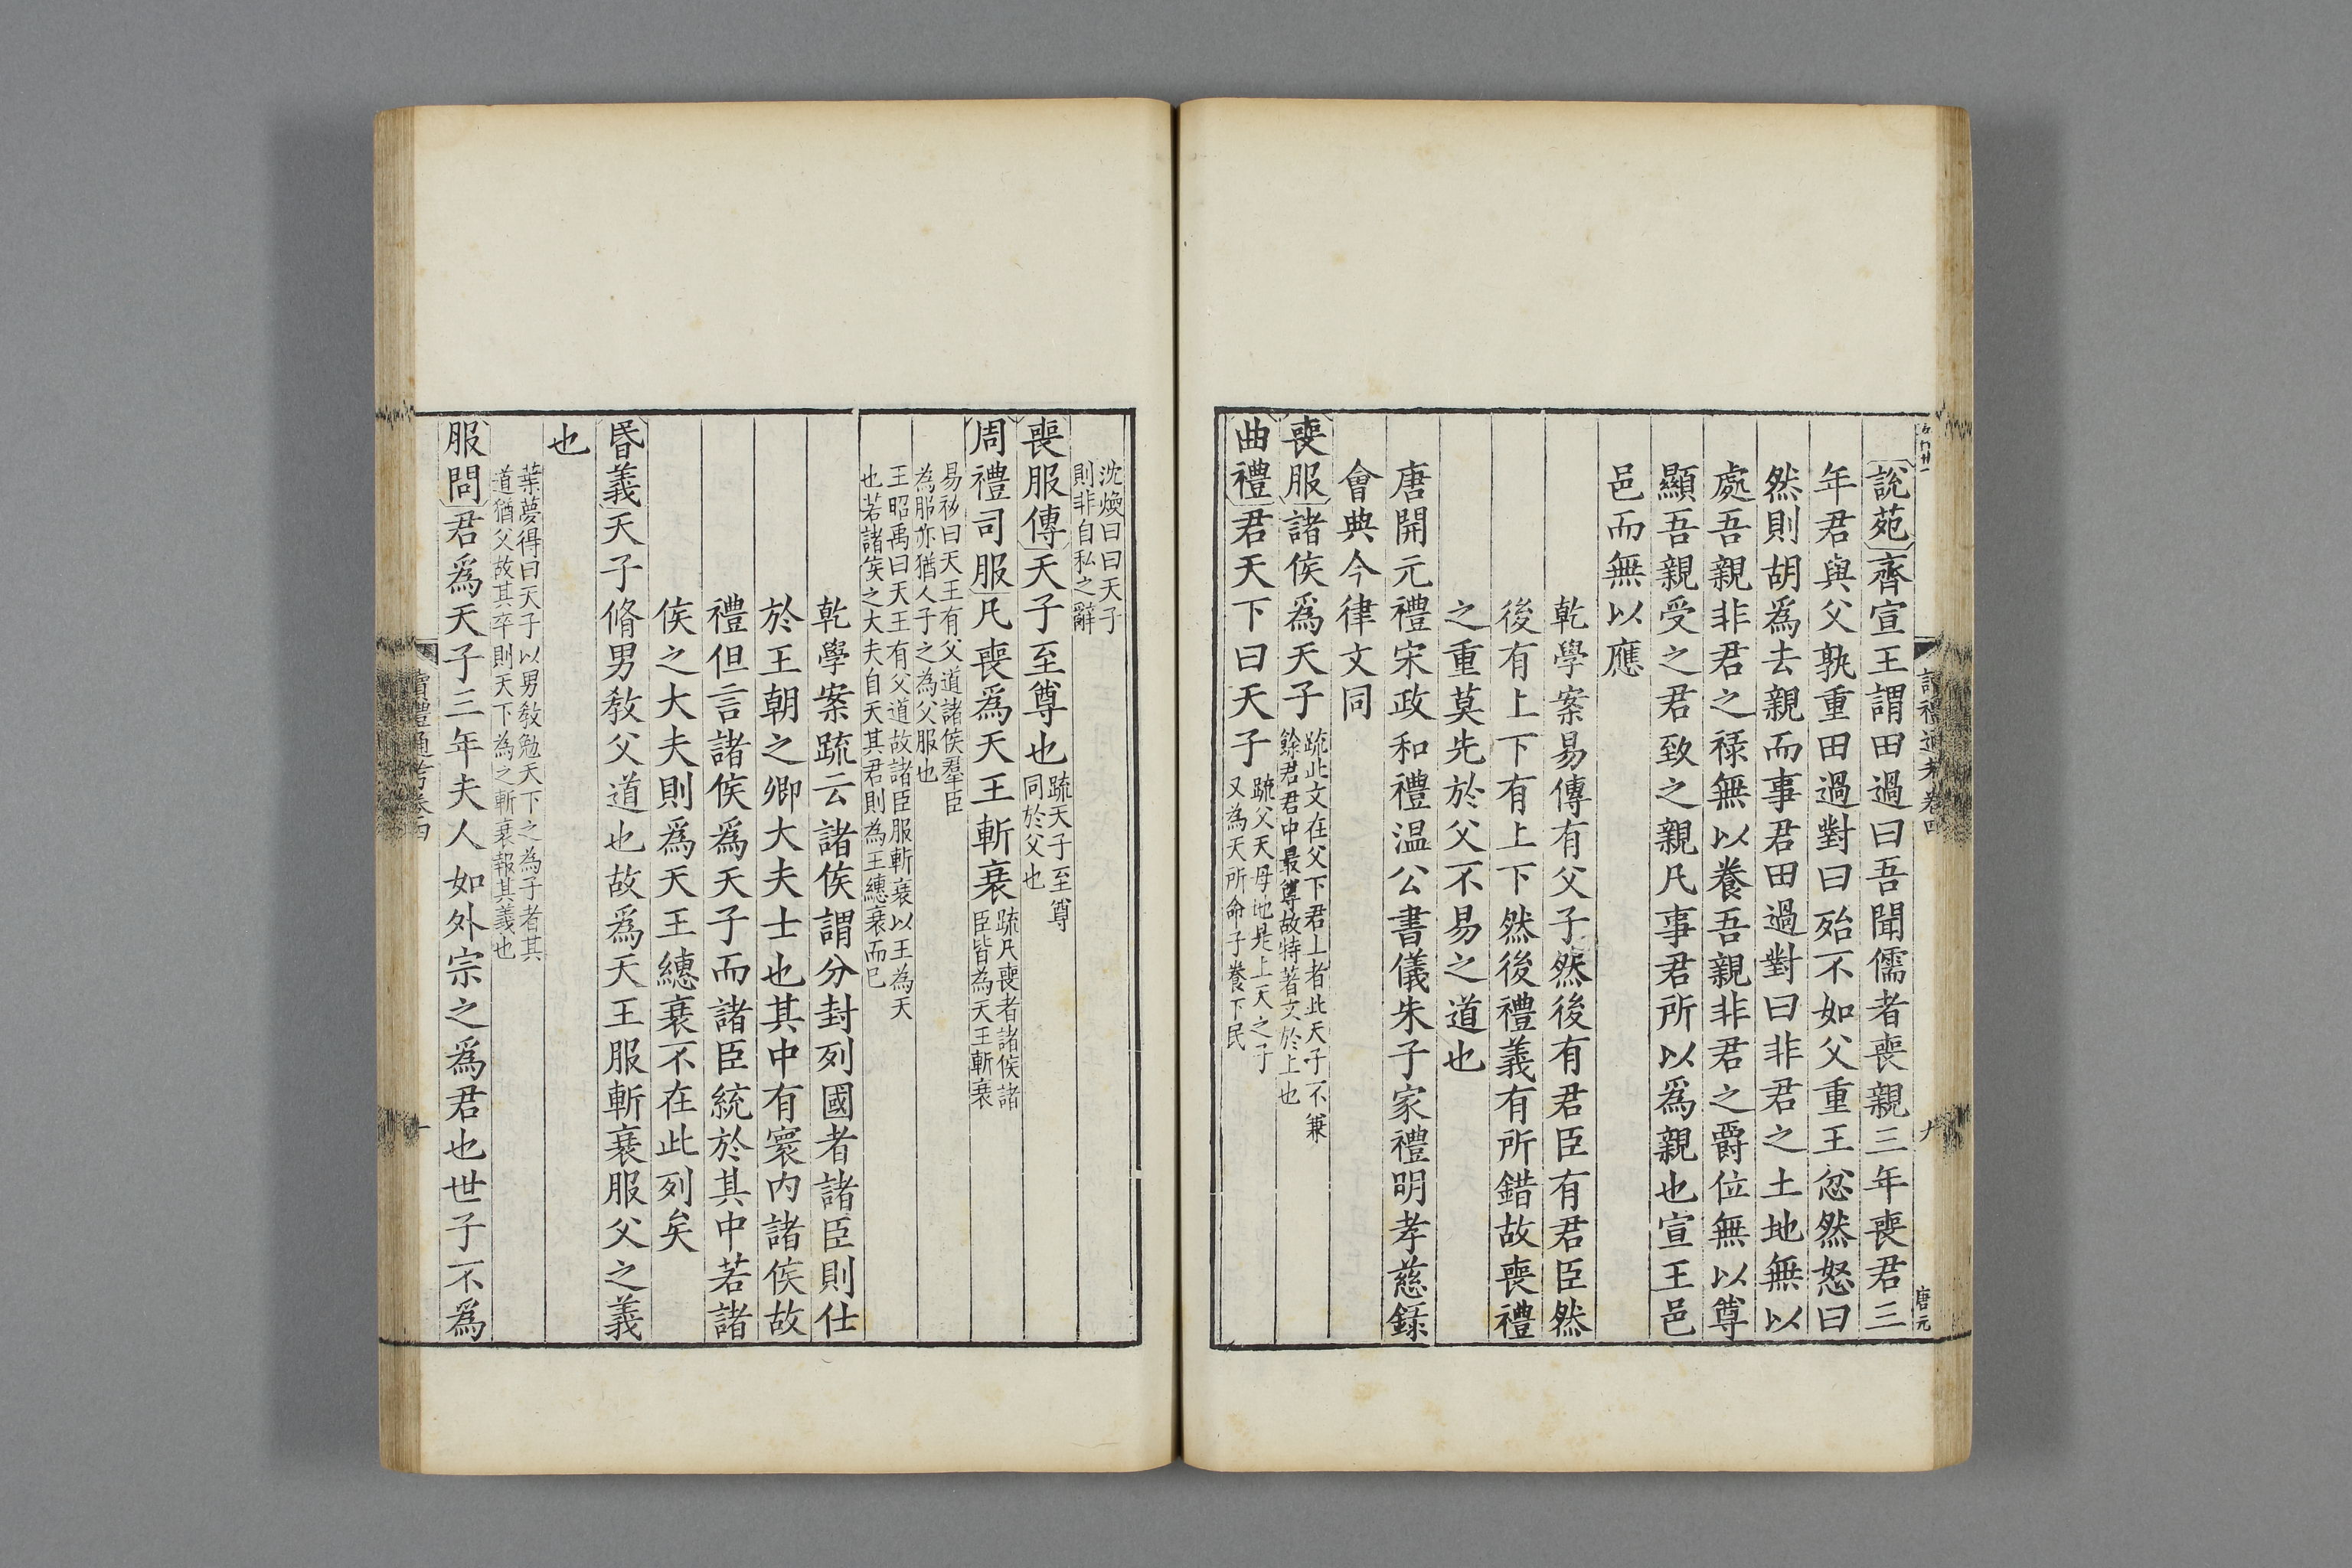 說苑齊宣王謂田過曰吾聞儒者喪親三年喪君三
年君與父孰重田過對曰殆不如父重王忿然怒曰
然則胡爲去親而事君田過對曰非君之土地無以
處吾親非君之祿無以養吾親非君之爵位無以尊
顯吾親受之君致之親凡事君所以爲親也宣王邑
邑而無以應
乾學案易傳有父子然後有君臣有君臣然
後有上下有上下然後禮義有所錯故喪禮
之重莫先於父不易之道也
唐開元禮宋政和禮温公書儀朱子家禮明孝慈錄
會典今律文同
喪服諸侯爲天子
疏此文在父下君上者此天子不兼
餘君君中最尊故特著文於上也
曲禮君天下曰天子
疏父天母地是上天之子
又為天所命子養下民
讀禮通考卷四
九
唐元
沈煥曰曰天子
則非自私之辭
喪服傳天子至尊也
疏天子至尊
同於父也
周禮司服凡喪爲天王斬衰
疏凡喪者諸侯諸
臣皆為天王斬衰
易祓曰天王有父道諸侯羣臣
為服亦猶人子之為父服也
王昭禹曰天王有父道故諸臣服斬衰以王為天
也若諸侯之大夫自天其君則為王繐衰而已
乾學案疏云諸侯謂分封列國者諸臣則仕
於王朝之卿大夫士也其中有寰内諸侯故
禮但言諸侯爲天子而諸臣統於其中若諸
侯之大夫則爲天王繐衰不在此列矣
昏義天子脩男敎父道也故爲天王服斬衰服父之義
也
葉夢得曰天子以男敎勉天下之為子者其
道猶父故其卒則天下為之斬衰報其義也
服問君爲天子三年夫人如外宗之爲君也世子不爲
讀禮通考卷四